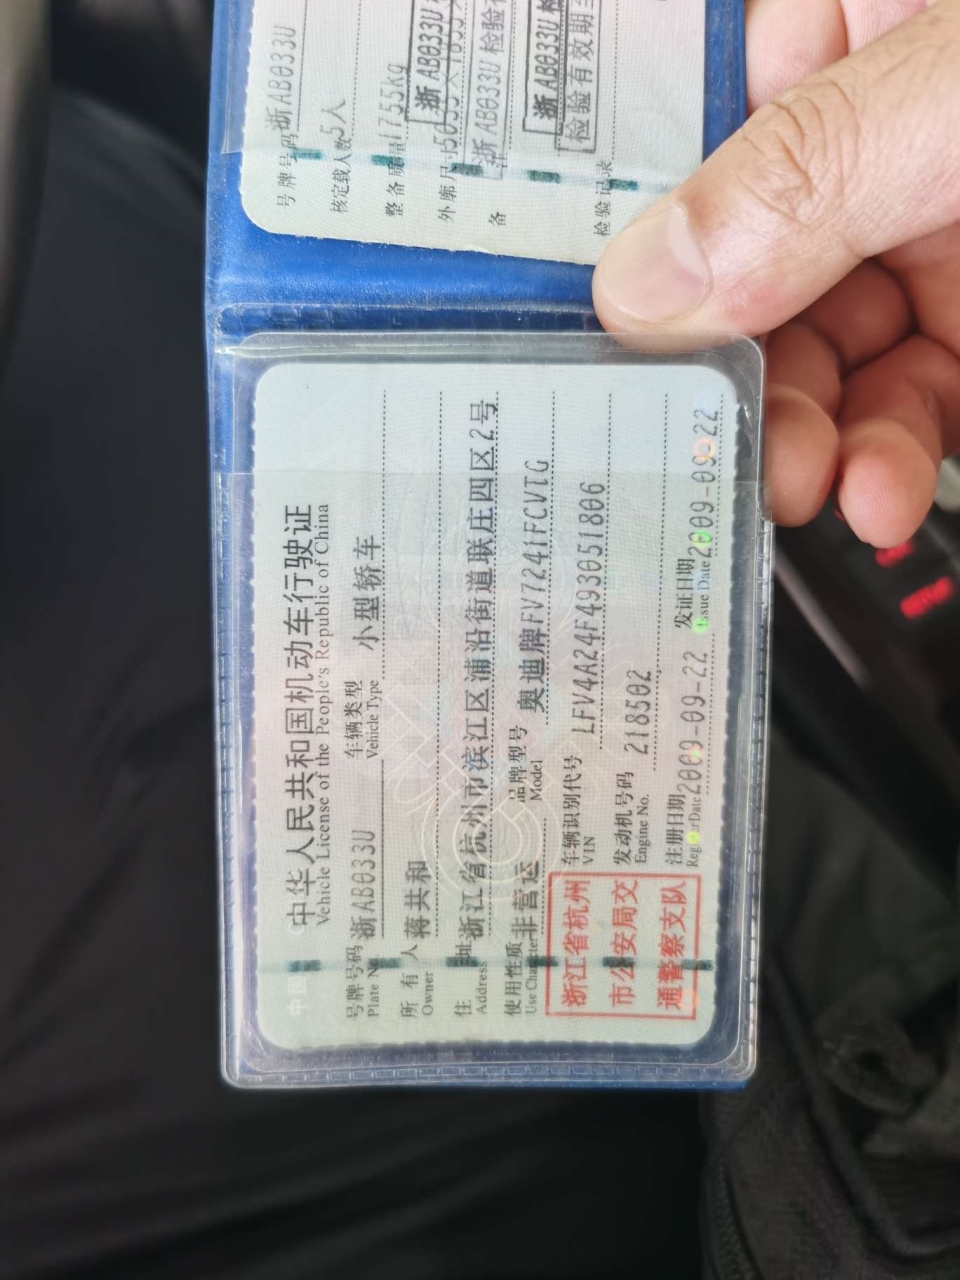 中华人民共和国机动车行驶证
Vehicle License of the People's Republic of China
号牌号码 浙AB033U 车辆类型 小型轿车
Plate No. Vehicle Type
所有人 蒋共和
Owner
住址 浙江省杭州市滨江区浦沿街道联庄四区2号
Address
使用性质 非营运 品牌型号 奥迪牌FV7241FCVTG
Use Character Model
浙江省杭州
市公安局交
通警察支队
车辆识别代号 LFV4A24F493051806
VIN
发动机号码 218502
Engine No.
注册日期 2009-09-22 发证日期 2009-09-22
Register Date Issue Date
号牌号码 浙AB033U
核定载人数 5人
整备质量 1755kg
外廓尺寸
备注
浙AB033U
浙AB033U 检验有
浙AB033U
检验有效期至
检验记录